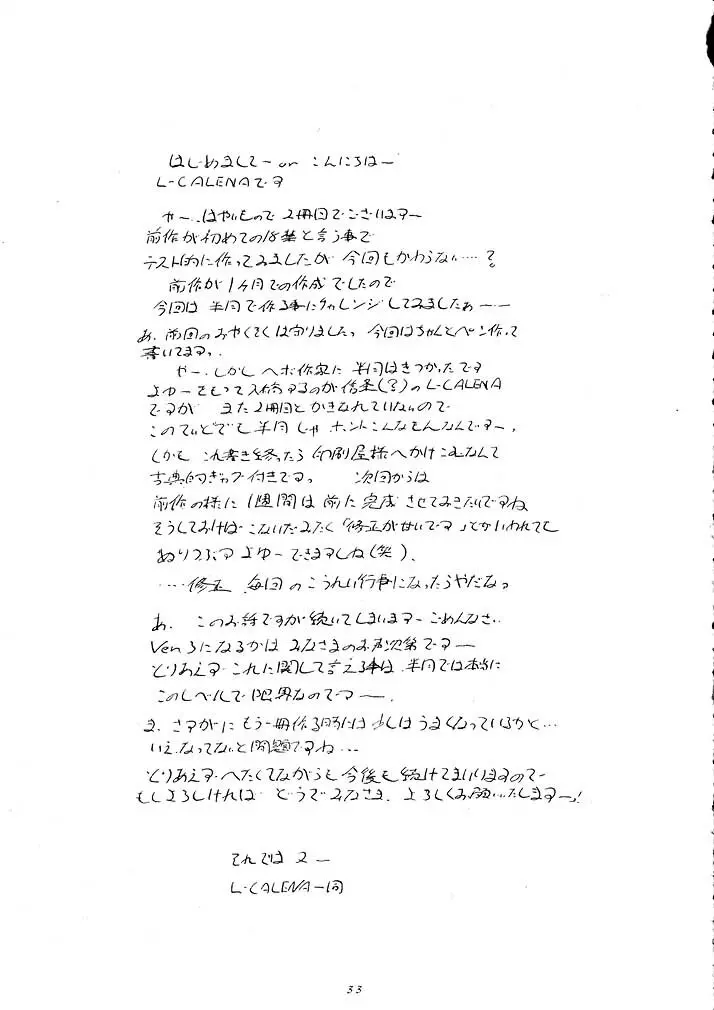 はじめましてー or こんにちはー
L-CALENAです
やー、はやいもので 2冊目でございますー
前作が初めての18禁と言う事で
テスト的に作ってみましたが 今回もかわらない……?
前作が1ヶ月での作成でしたので
今回は 半月で作る事にチャレンジしてみましたぁーー
あ、前回のおやくそくは守りましたっ 今回はちゃんとペン作って
書いてますっ、
やー、しかし ヘボ作家に 半月はきつかったです
よゆーをもって入稿するのが信条(?)のL-CALENA
ですが まだ2冊目とかきなれていないので
このていどでも半月じゃ ホントこんなもんなんですー、
しかも これ書き終ったら 印刷屋様へかけこむなんて
古典的ギャグ付きですっ 次回からは
前作の様に 1週間は前に完成させておきたいですね
そうしておけば こないだみたく「修正が甘いです」とかいわれても
ぬりつぶす よゆーできますしね(笑)、
……修正 毎回のこうれい行事になったらやだなっ
あ、 このお話ですが続いてしまいますー ごめんなさい
Ver 3になるかは みなさまのお声次第ですー
とりあえず これに関して言える事は 半月では本当に
このレベルで限界なのですー.
ま、さすがに もう一冊作る頃には 少しはうまくなっているかと…
いえ、なってないと問題ですね…
とりあえず へたくそながらも 今後も続けてまいりますので
もしよろしければ どうぞみなさま、よろしくお願いいたしますーっ!
それでは 2ー
L-CALENA一同
33